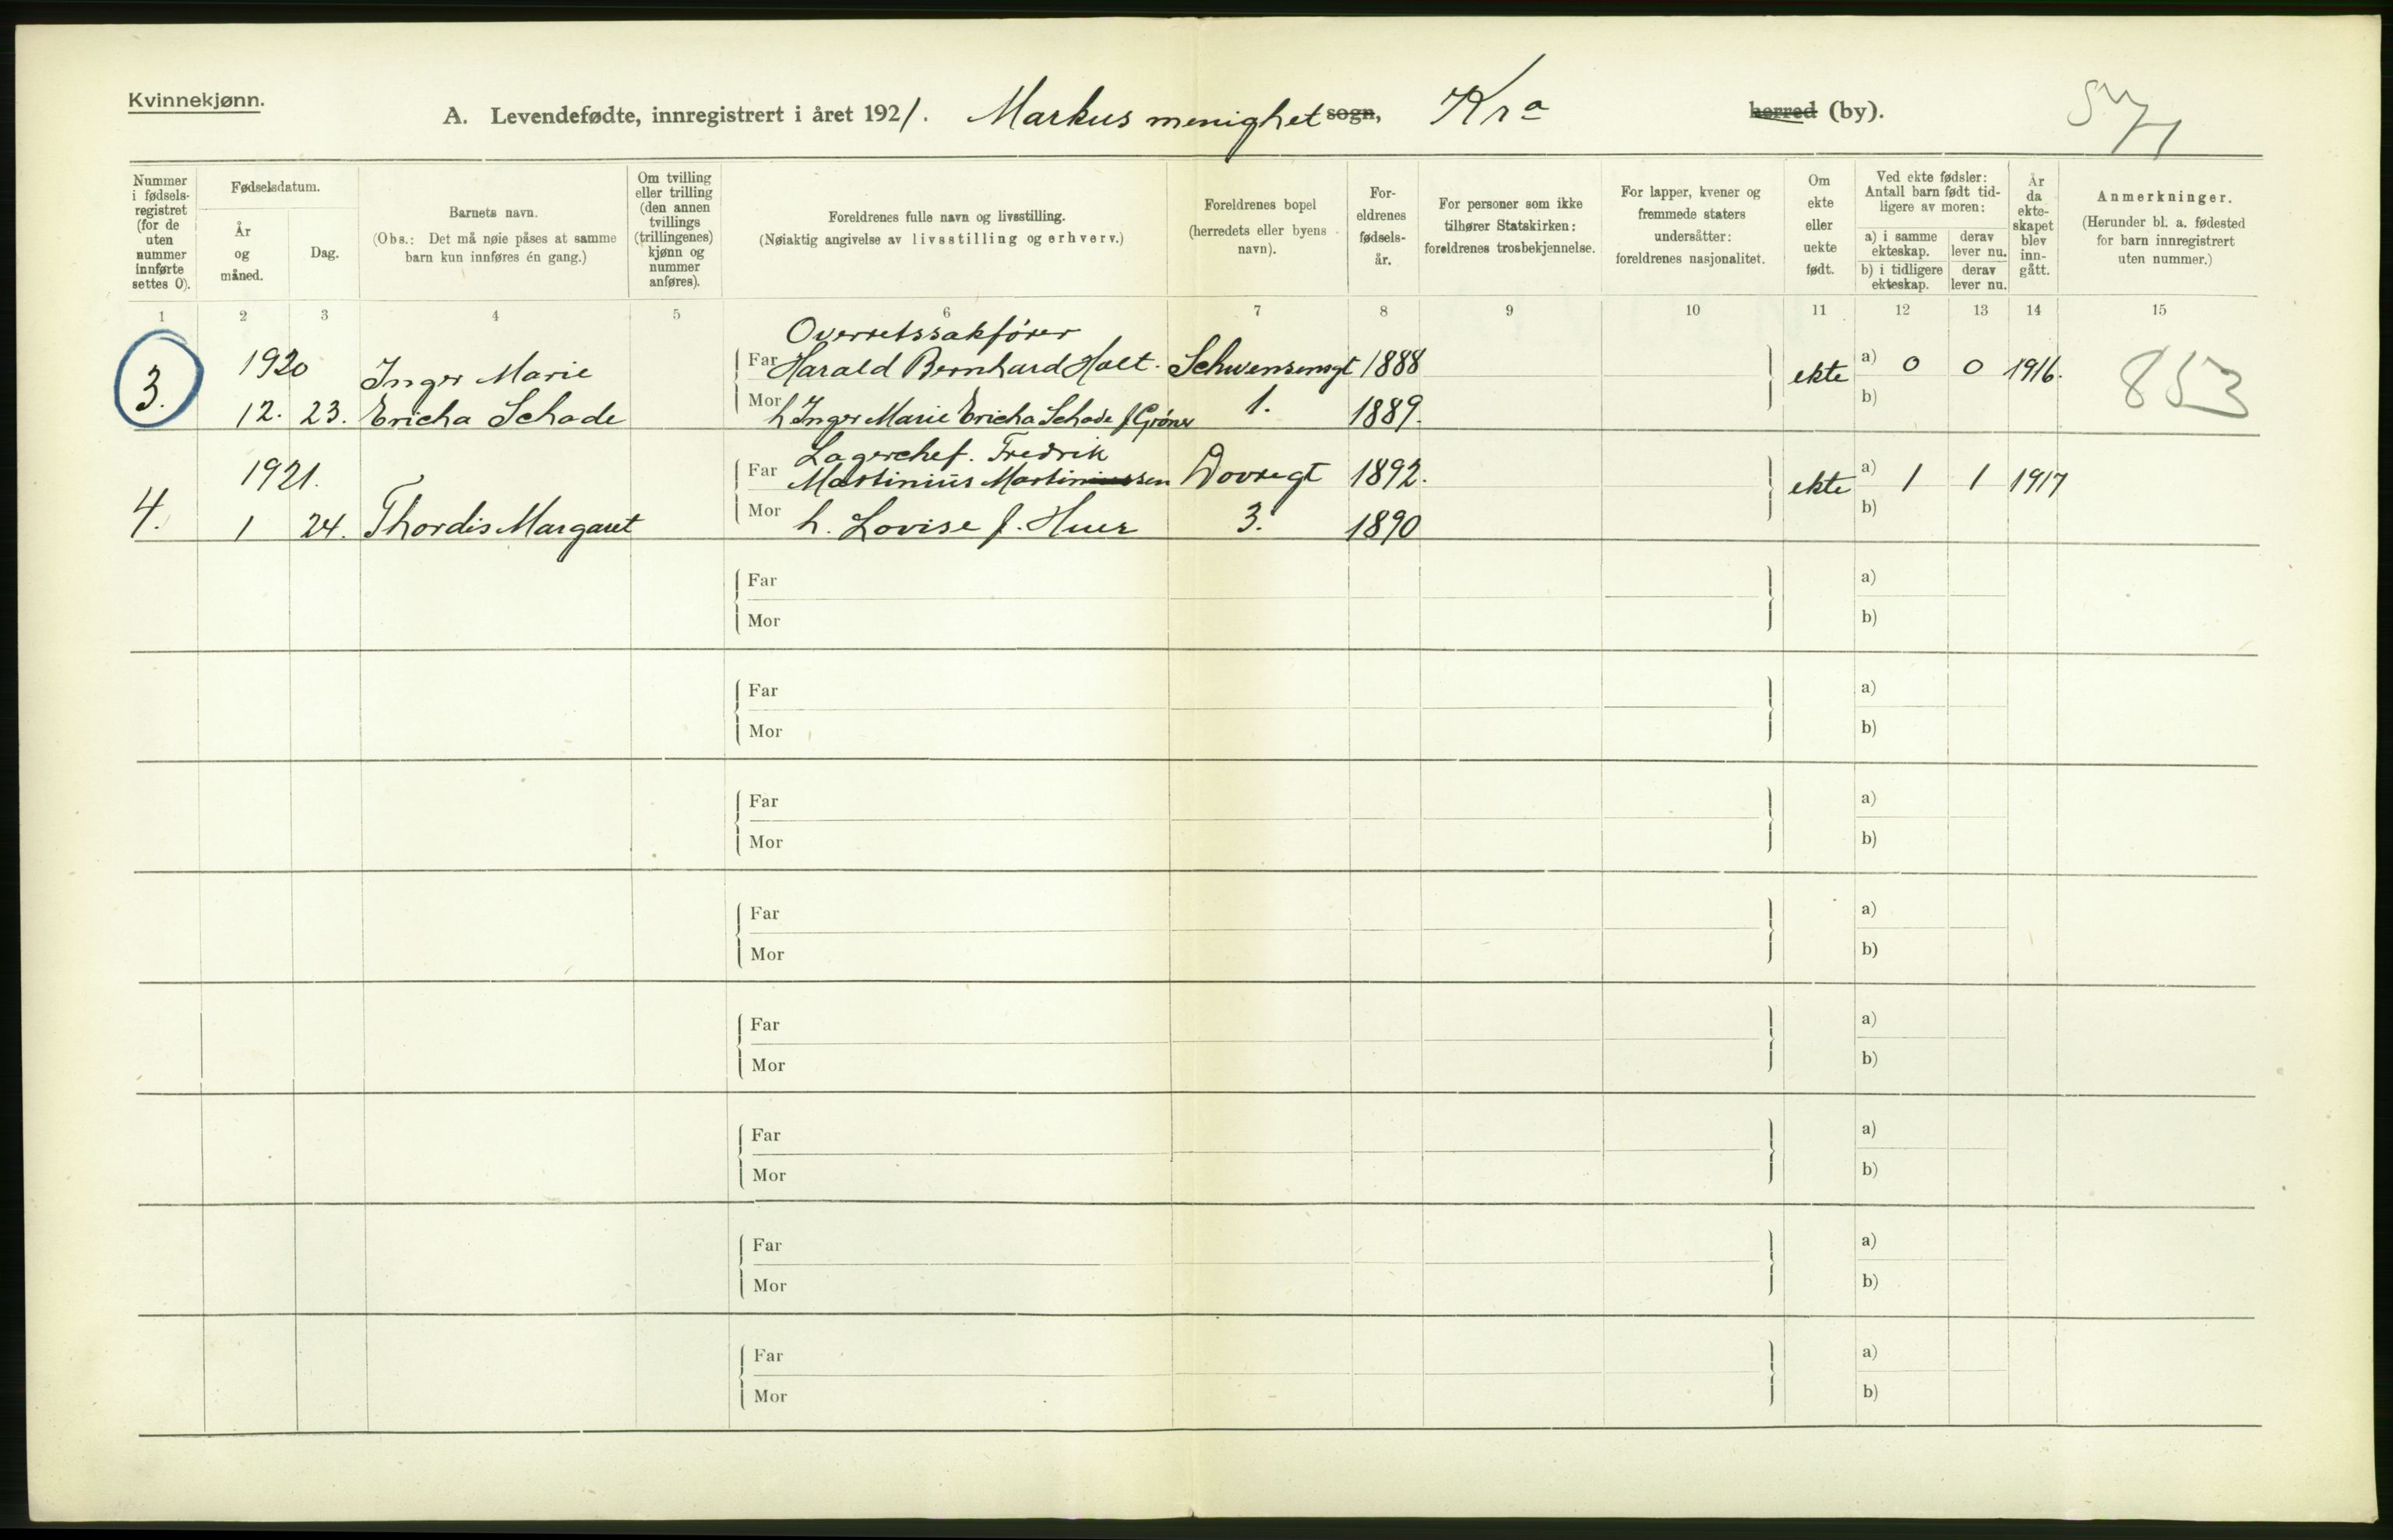 Kvinnekjønn.
A. Levendefødte, innregistrert i året 1921. Markus menighet sogn, Kra herred (by).
Nummer i fødsels-registret (for de uten nummer innførte settes 0).
Fødselsdatum.
År og måned.
Dag.
Barnets navn.
(Obs.: Det må nøie påses at samme barn kun innføres én gang.)
Om tvilling eller trilling (den annen tvillings (trillingenes) kjønn og nummer anføres).
Foreldrenes fulle navn og livsstilling.
(Nøiaktig angivelse av livsstilling og erhverv.)
Foreldrenes bopel
(herredets eller byens navn).
For-eldrenes fødsels-år.
For personer som ikke tilhører Statskirken: foreldrenes trosbekjennelse.
For lapper, kvener og fremmede staters undersåtter: foreldrenes nasjonalitet.
Om ekte eller uekte født.
Ved ekte fødsler: Antall barn født tid-ligere av moren:
a) i samme ekteskap.
derav lever nu.
b) i tidligere ekteskap.
derav lever nu.
År da ekte-skapet blev inn-gått.
Anmerkninger.
(Herunder bl. a. fødested for barn innregistrert uten nummer.)
1 2 3 4 5 6 7 8 9 10 11 12 13 14 15
Overretssakfører
3. 1920 Inger Marie Far Harald Bernhard Holt. Schwensensgt 1888 ekte a) 0 0 1916. 853
12. 23. Ericha Schade Mor h Inger Marie Ericha Schade f. Grøner 1. 1889. b)
Lagerchef. Fredrik
4. 1921. Far Martinius Martiniussen Dovregt 1892. ekte a) 1 1 1917
1 24. Thordis Margaret Mor h. Lovise f. Huer 3. 1890 b)
Far a)
Mor b)
Far a)
Mor b)
Far a)
Mor b)
Far a)
Mor b)
Far a)
Mor b)
Far a)
Mor b)
Far a)
Mor b)
Far a)
Mor b)